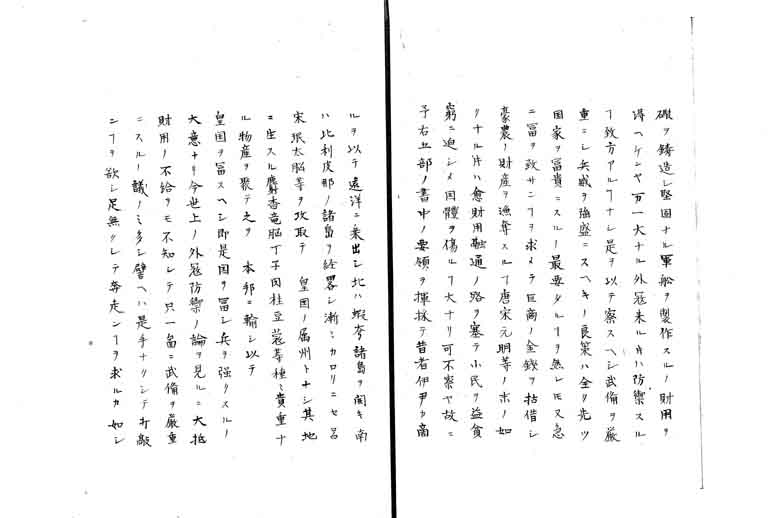 礟ヲ鋳造シ堅固ナル軍舩ヲ製作スルノ財用ヲ
得ヘケンヤ万一大ナル外冦来ル片ハ防禦スル
ヿ致方アルヿナシ是ヲ以テ察スヘシ武備ヲ厳
重ニシ兵威ヲ強盛ニスヘキノ良策ハ全ク先ツ
国家ヲ富貴ニスルノ最要タルヿヲ無レ𪜈又急
ニ富ヲ致サンヿヲ求メテ巨商ノ金銭ヲ枯借シ
豪農ノ財産ヲ漁奪スルヿ唐宋元明等ノ末ノ如
クナル片ハ愈財用融通ノ路ヲ塞テ小民ヲ益貧
窮ニ迫シメ国體ヲ傷ルヿ大ナリ可不察や故ニ
予右五部ノ書中ノ要領ヲ揮採テ昔者伊尹カ商
ルヲ以テ遠洋ニ乗出シ北ハ蝦夷諸島ヲ開キ南
ハ比利皮那ノ諸島ヲ経畧シ漸ニカロリニセ呂
宋珉太脳等ヲ攻取テ 皇国ノ属州トナシ其地
ニ生スル麝香竜脳丁子肉桂豆蔲等種ニ貴重ナ
ル物産ヲ聚テ之ヲ 本邦ニ輸シ以テ
皇国ヲ冨スヘシ即是国ヲ冨シ兵ヲ强クスルノ
大意ナリ今世上ノ外冦防禦ノ論ヲ見ルニ大抵
財用ノ不給ヲモ不知レテ只一畨ニ武備ヲ厳重
ニスルノ議ノミ多シ譬ヘハ是手ナクシテ打敵
ンヿヲ欲シ足無クシテ奔走ンヿヲ求ルカ如シ